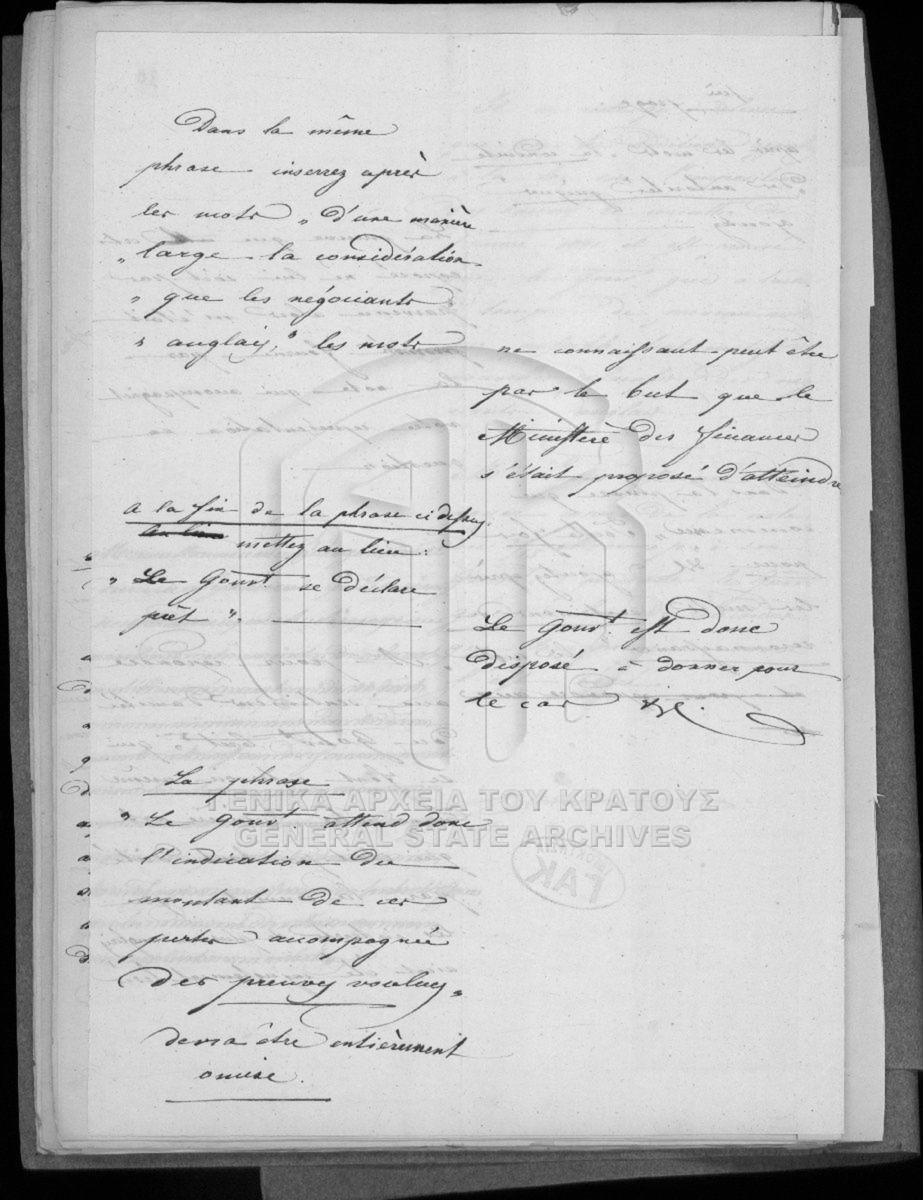 Dans la même
phrase inserrez après
les mots „ d'une manière
„ large la considération
„ que les négociants
„ anglais," les mots
ne connaissant peut être
pas le but que le
Ministère des finances
s'était proposé d'atteindre
A la fin de la phrase ci dessus
au lieu mettez au lieu:
„ Le Gouvt se déclare
prêt ".
Le Gouvt est donc
disposé à donner pour
le cas
La phrase
„ Le Gouvt attend donc
l'indication du
montant de ces
pertes accompagnée
des preuves voulues „
devra être entièrement
omise.
ΓΕΝΙΚΑ ΑΡΧΕΙΑ ΤΟΥ ΚΡΑΤΟΥΣ
GENERAL STATE ARCHIVES